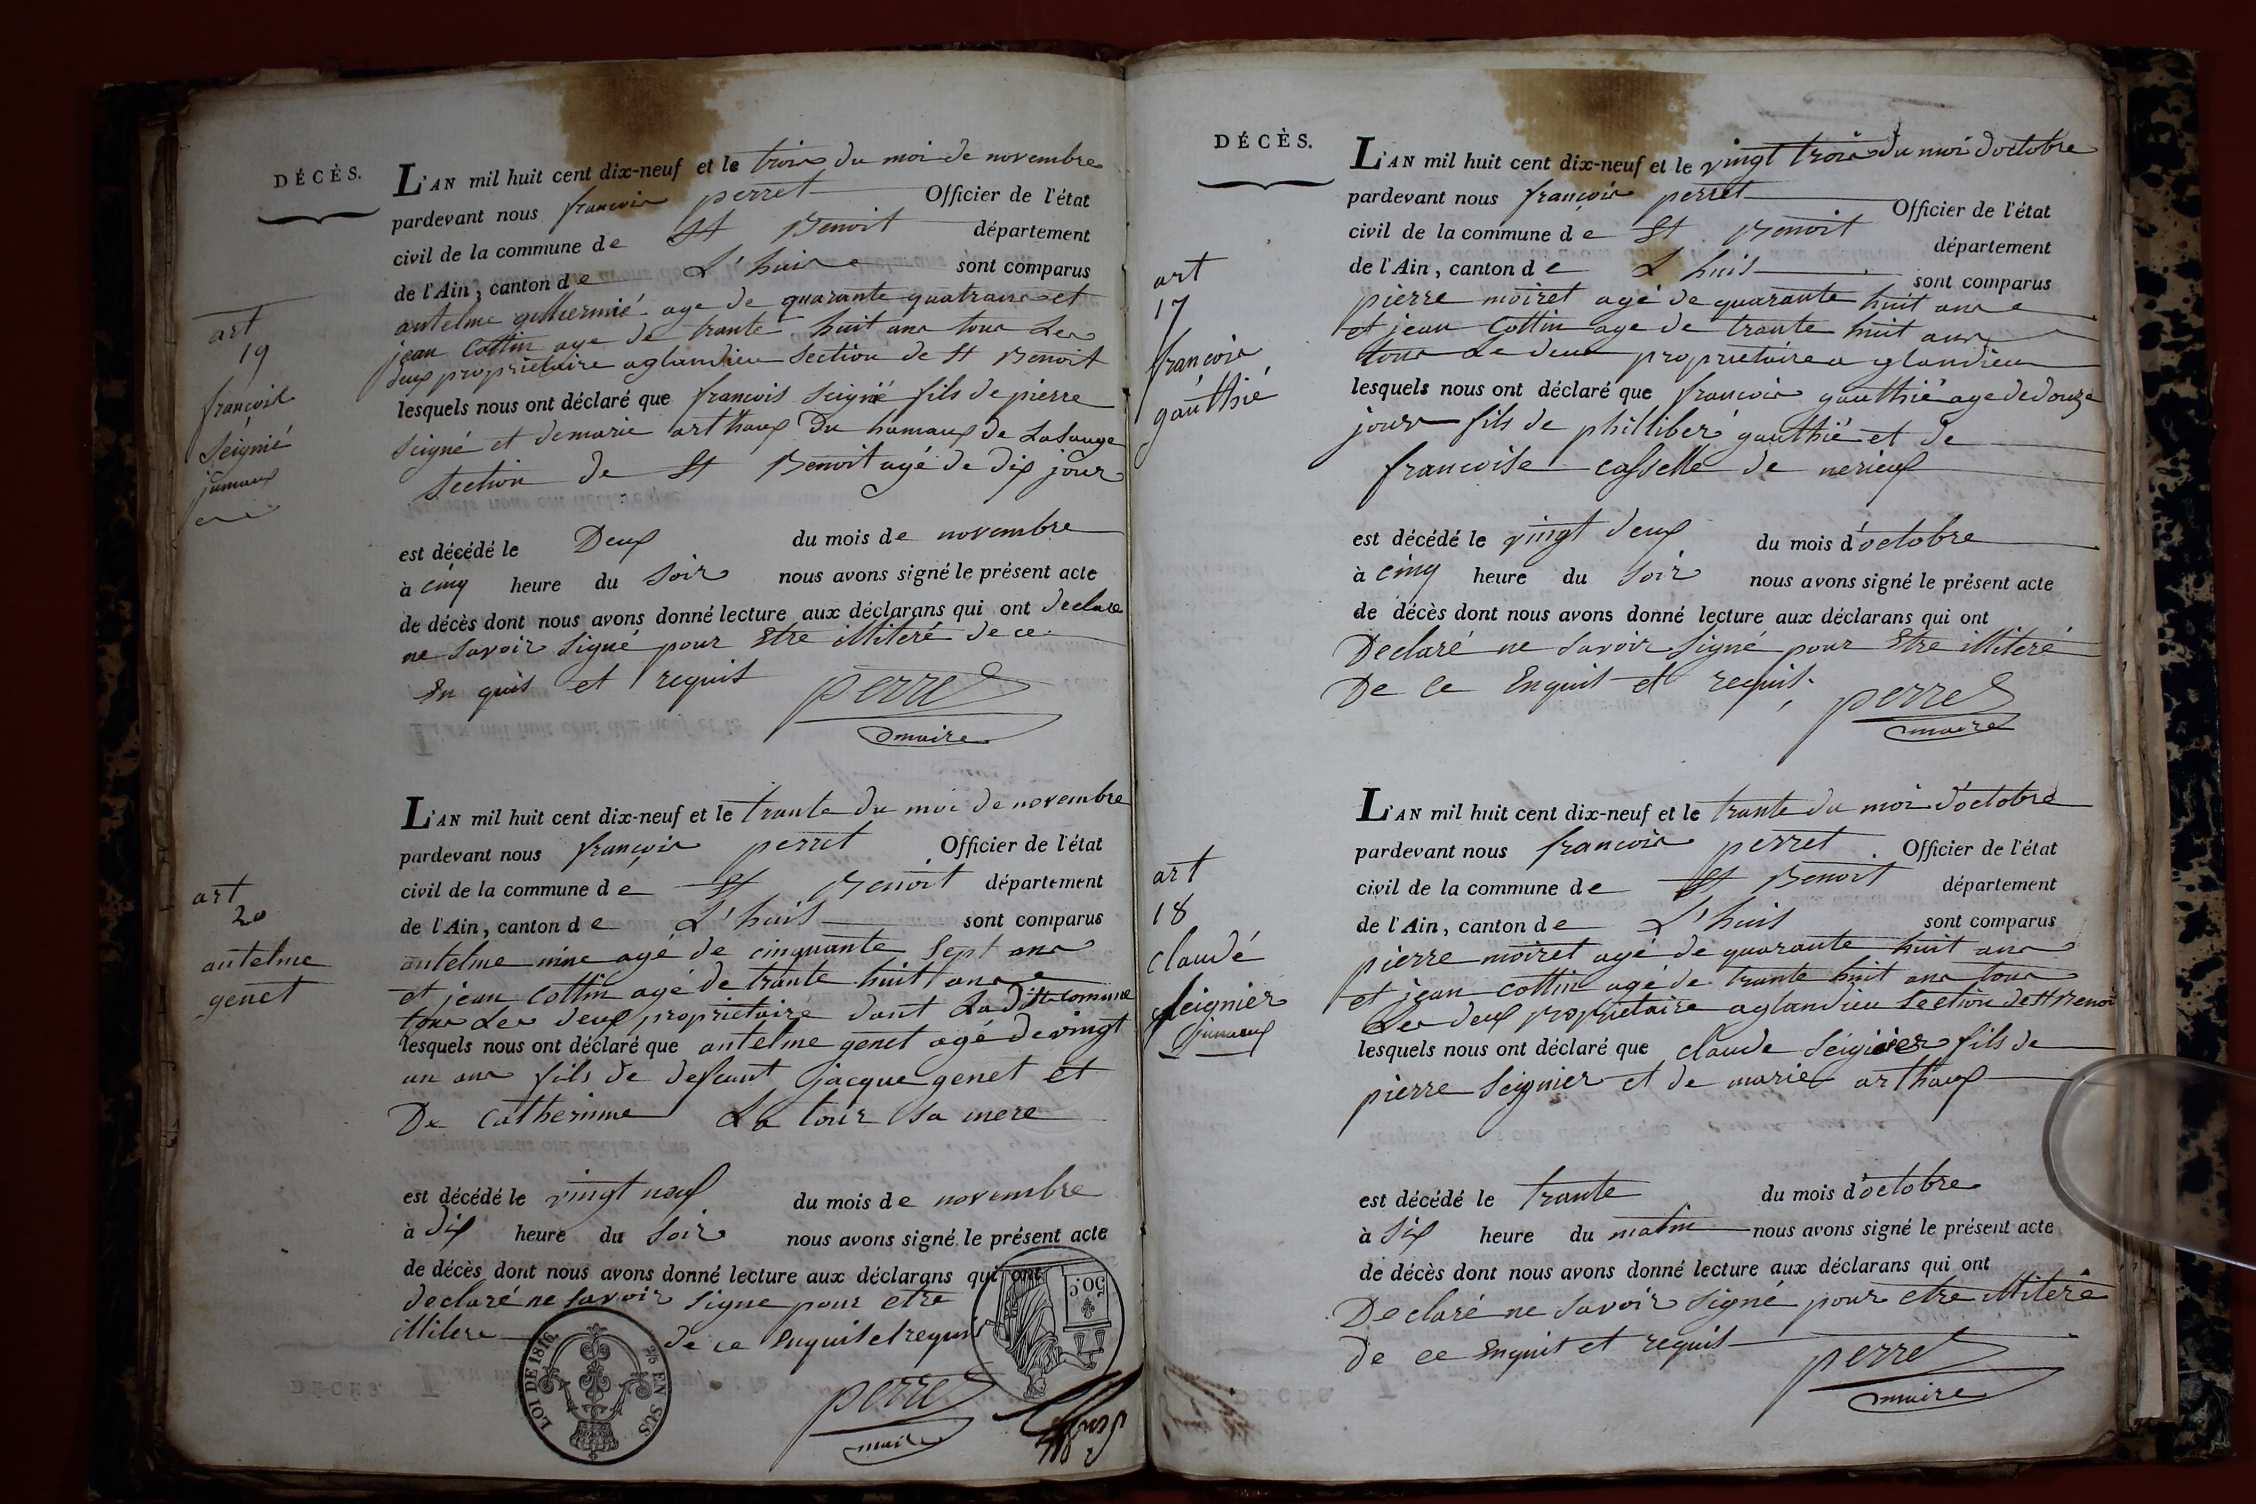 DÉCÈS.
L'AN mil huit cent dix-neuf et le trois du moi de novembre
pardevant nous francois perret Officier de l'état
civil de la commune de St Benoit département
de l'Ain, canton de L'huis sont comparus
art
19
francois
Seignié
jumaux
antelme guillermié age de quarante quatrans et
jean Cottin age de trante huit ans tous Les
deux proprietaire aglandieu Section de St Benoit
lesquels nous ont déclaré que francois Seigné fils de pierre
Seigné et demarie arthaux Du hamaux de Lasauge
Section de St Benoit agé de dix jour
est décédé le Deux du mois de novembre
à cinq heure du Soir nous avons signé le présent acte
de décès dont nous avons donné lecture aux déclarans qui ont declaré
ne Savoir Signé pour Etre illiteré de ce
En quis et requis
perret
maire
L'AN mil huit cent dix-neuf et le trante du moi de novembre
pardevant nous françois perret Officier de l'état
civil de la commune de St Benoit département
de l'Ain, canton de L'huis sont comparus
art
20
antelme
genet
antelme mine agé de cinquante Sept ans
et jean Cottin agé de trante huit ans
tous Les deux proprietaire dant Ladite comune
lesquels nous ont déclaré que antelme genet agé de vingt
un ans fils de defeunt jacque genet et
De Catherinne La tour Sa mere
est décédé le vingt neuf du mois de novembre
à dix heure du Soir nous avons signé le présent acte
de décès dont nous avons donné lecture aux déclarans qui ont
declaré ne Savoir Signe pour etre
illitere de ce Enquis et requis
LOI DE 1816.
2/5 EN SUS
50 C
perret
maire
DÉCÈS.
L'AN mil huit cent dix-neuf et le vingt trois du moi d'octobre
pardevant nous françois perret Officier de l'état
civil de la commune de St Benoit département
de l'Ain, canton de L'huis sont comparus
art
17
françois
gauthié
pierre moiret agé de quarante huit ans
et jean Cottin age de trante huit ans
tous Le deux proprietaire a glandieu
lesquels nous ont déclaré que francois gauthié age dedouze
jours fils de philliber gauthié et de
francoise casselle de nerieux
est décédé le vingt deux du mois d'octobre
à cinq heure du Soir nous avons signé le présent acte
de décès dont nous avons donné lecture aux déclarans qui ont
Declaré ne Savoir Signé pour Etre illiteré
De Ce Enquit et requis.
perret
maire
L'AN mil huit cent dix-neuf et le trante du moi d'octobre
pardevant nous francois perret Officier de l'état
civil de la commune de St Benoit département
de l'Ain, canton de L'huis sont comparus
art
18
claudé
seignier
jumaux
pierre moiret agé de quarante huit ans
et jean cottin agé de trante huit ans tous
Les deux proprietaire aglandieu Section de St Benoi
lesquels nous ont déclaré que claude Seignier fils de
pierre Seignier et de marie arthaux
est décédé le trante du mois d'octobre
à Six heure du matin nous avons signé le présent acte
de décès dont nous avons donné lecture aux déclarans qui ont
Declaré ne Savoir Signé pour etre illiteré
de ce Enquit et requis
perret
maire